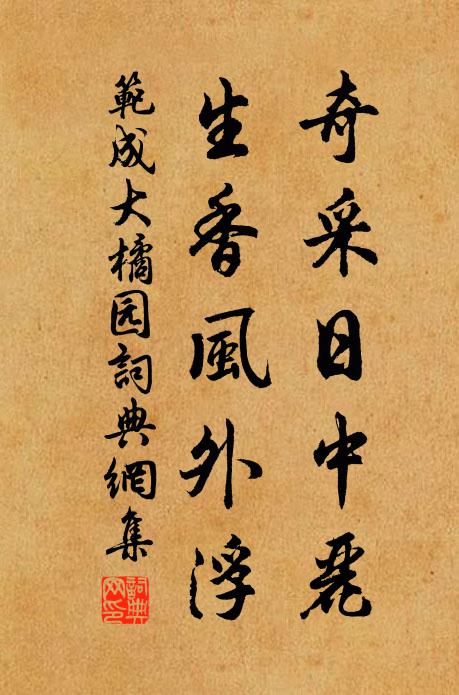 奇采日中麗
生香風外浮
範成大橘园詞典網集
詞典網印